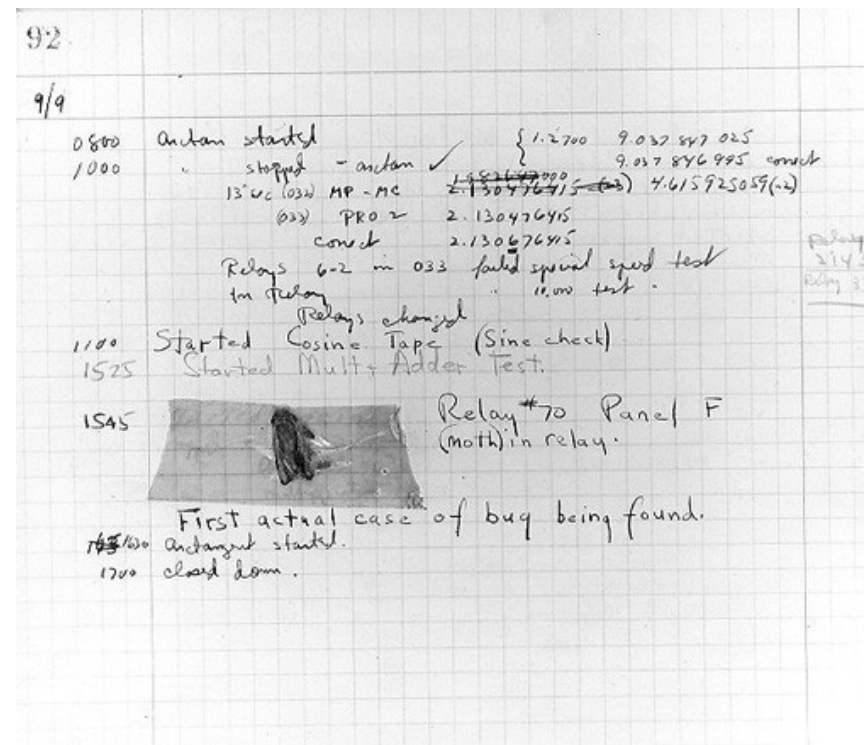 92
9/9
0800 arctan started { 1.2700 9.037 847 025
1000 " stopped - arctan ✓ 9.037 846 995 conect
13" uc (032) MP - MC 2.130476415 (-3) 4.615925059(-2)
(033) PRO 2 2.130476415
conect 2.130676415
Relays 6-2 in 033 failed special speed test
in relay " 10.000 test .
Relays changed
1100 Started Cosine Tape (Sine check)
1525 Started Mult + Adder Test.
1545 Relay #70 Panel F
(moth) in relay.
First actual case of bug being found.
1630 arctangent started.
1700 closed down.
Relay
Relay 3